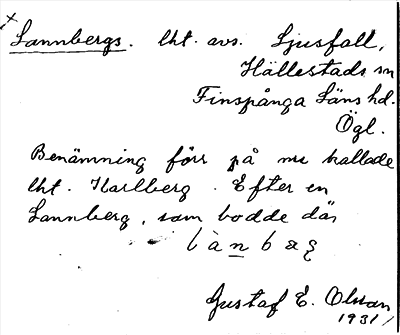 x Lannbergs. lht. avs. Ljusfall,
Hällestads sn
Finspånga Läns hd.
Ögl.
Benämning förr på nu kallade
lht. Karlberg. Efter en
Lannberg, som bodde där
Gustaf E. Olsson
1931